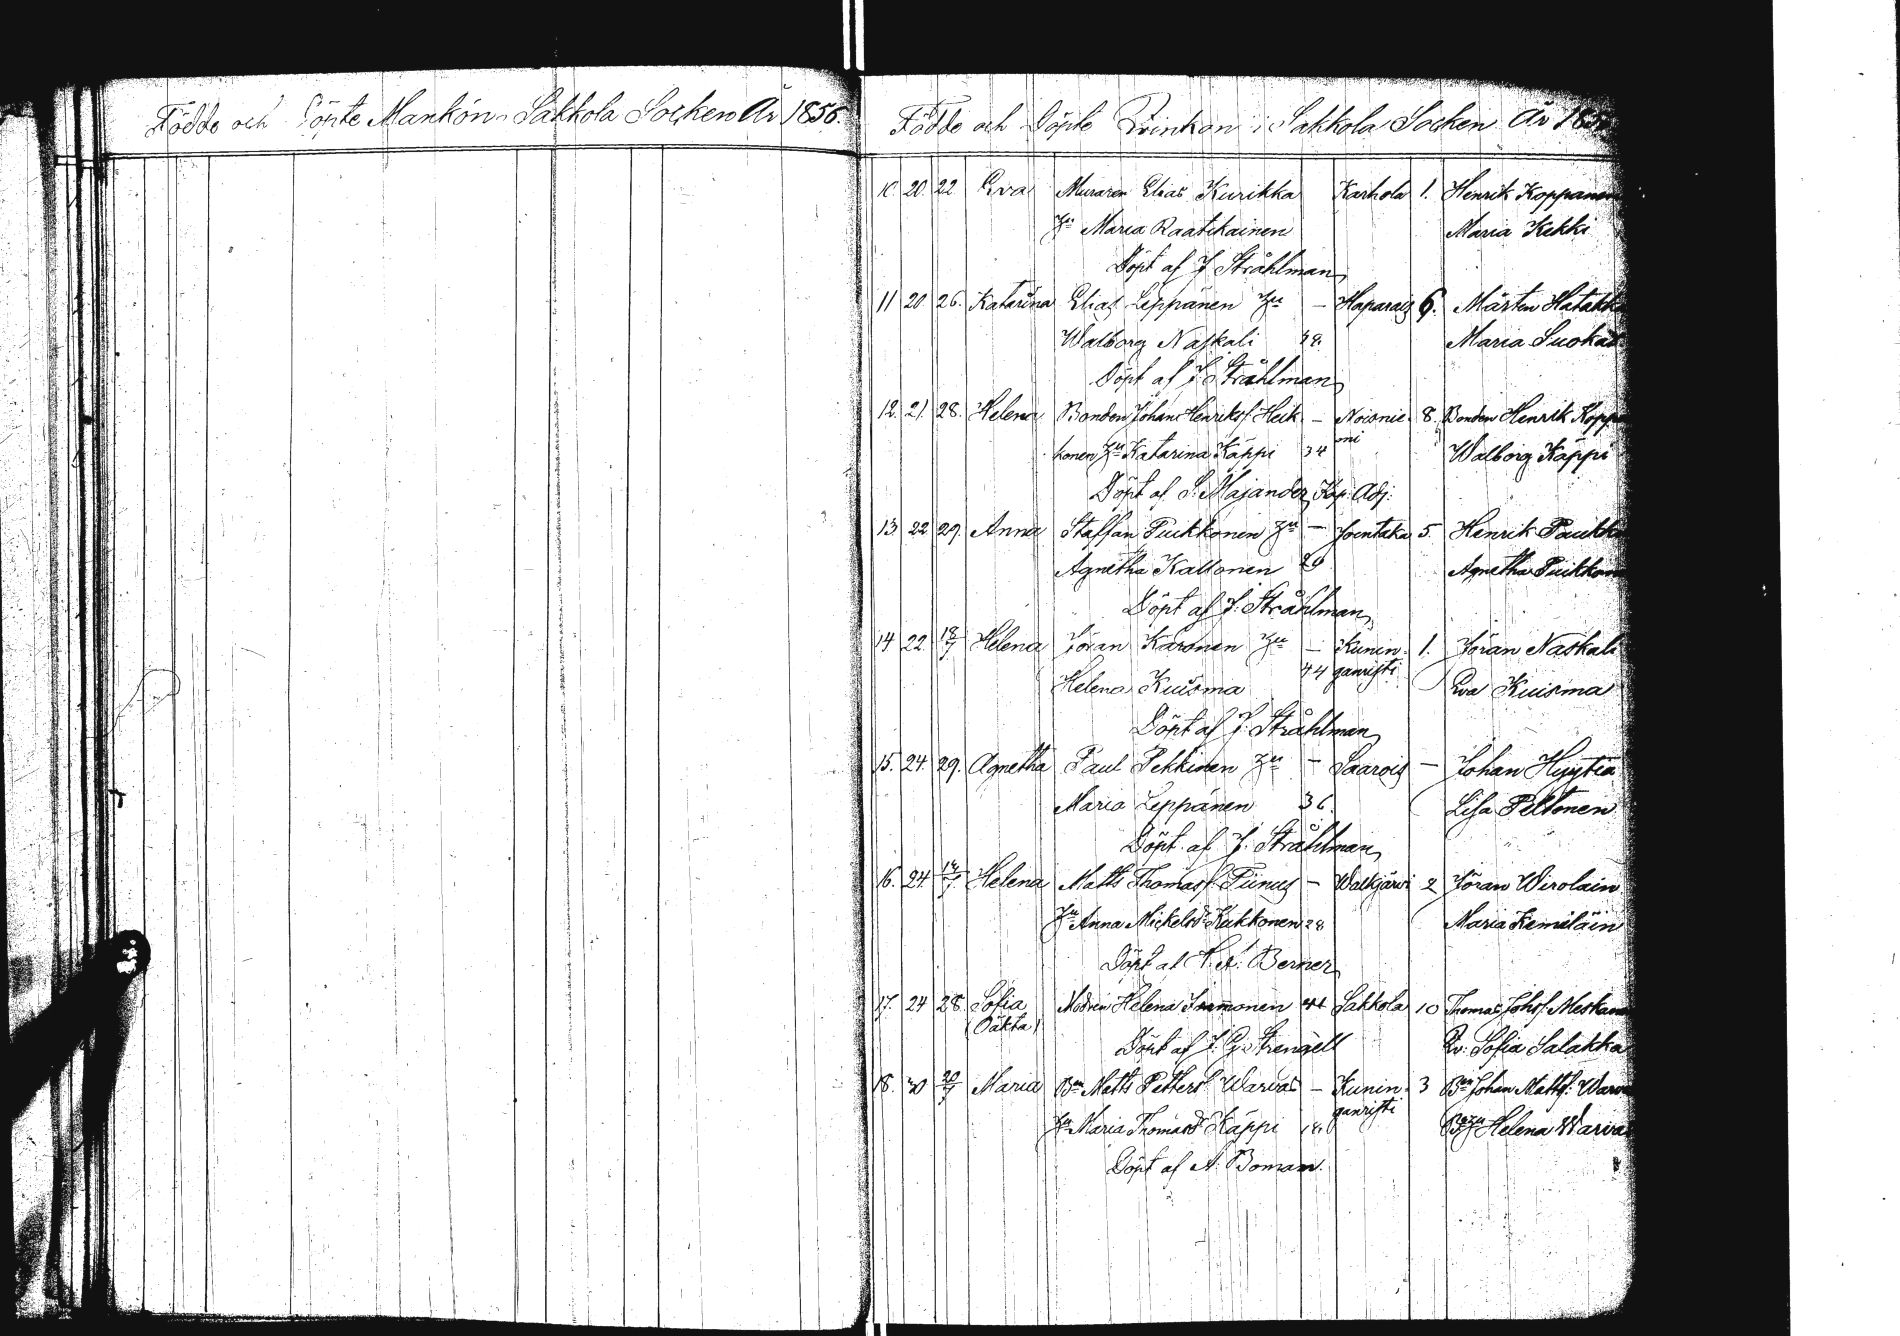 Födde och Döpte Mankön i Sakkola Socken År 1856.
Födde och Döpte Qvinkön i Sakkola Socken År 185
10. 20. 22 Eva Muraren Elias Kurikka Karhola 1. Henrik Koppanen
Hu Maria Raatikainen Maria Kekki
Döpt af J. Stråhlman
11 20 26. Katarina Elias Leppänen Hu — Haparais 6. Mårten Hatakka
Walborg Naskali Maria Suokas
Döpt af J. Stråhlman
12. 21. 28. Helena Bonden Johan Henrikss. Heik- — Noisnie- 8. Bonden Henrik Koppa
konen Hu Katarina Käppi 34 mi Walborg Käppi
Döpt af S. Majander, Kap. Adj:
13. 22 29. Anna Staffan Puikkonen Hu — Joentaka 5. Henrik Paukku
Agnetha Kaltonen 26 Agnetha Puikkonen
Döpt af J. Stråhlman
14 22. 18/7 Helena Jöran Karonen Hu — Kunin- 1. Jöran Naskali
Helena Kuisma 44 ganristi Eva Kuisma
Döpt af J. Stråhlman
15. 24. 29. Agnetha Paul Pekkinen Hu — Saarois — Johan Hyytiä
Maria Leppänen 36. Lisa Peltonen
Döpt af J. Stråhlman
16. 24. Helena Matts Thomass. Piinus — Walkjärvi 2 Jöran Wirolain
Hu Anna Mickelsd. Kukkonen 28 Maria Kemiläin
Döpt af A. Berner
17. 24 28. Sofia Modren Helena Inkmonen 44 Sakkola 10 Thomas Johs. Meskanen
(Oäkta) Döpt af J. G. Strengell Qv: Sofia Salakka
18. 30 20/7 Maria Bn Matts Petters. Warvas — Kunin- 3 Bn Johan Matts. Warva
Hu Maria Thomasd. Käppi 18. ganristi Helena Warva
Döpt af A. Boman.